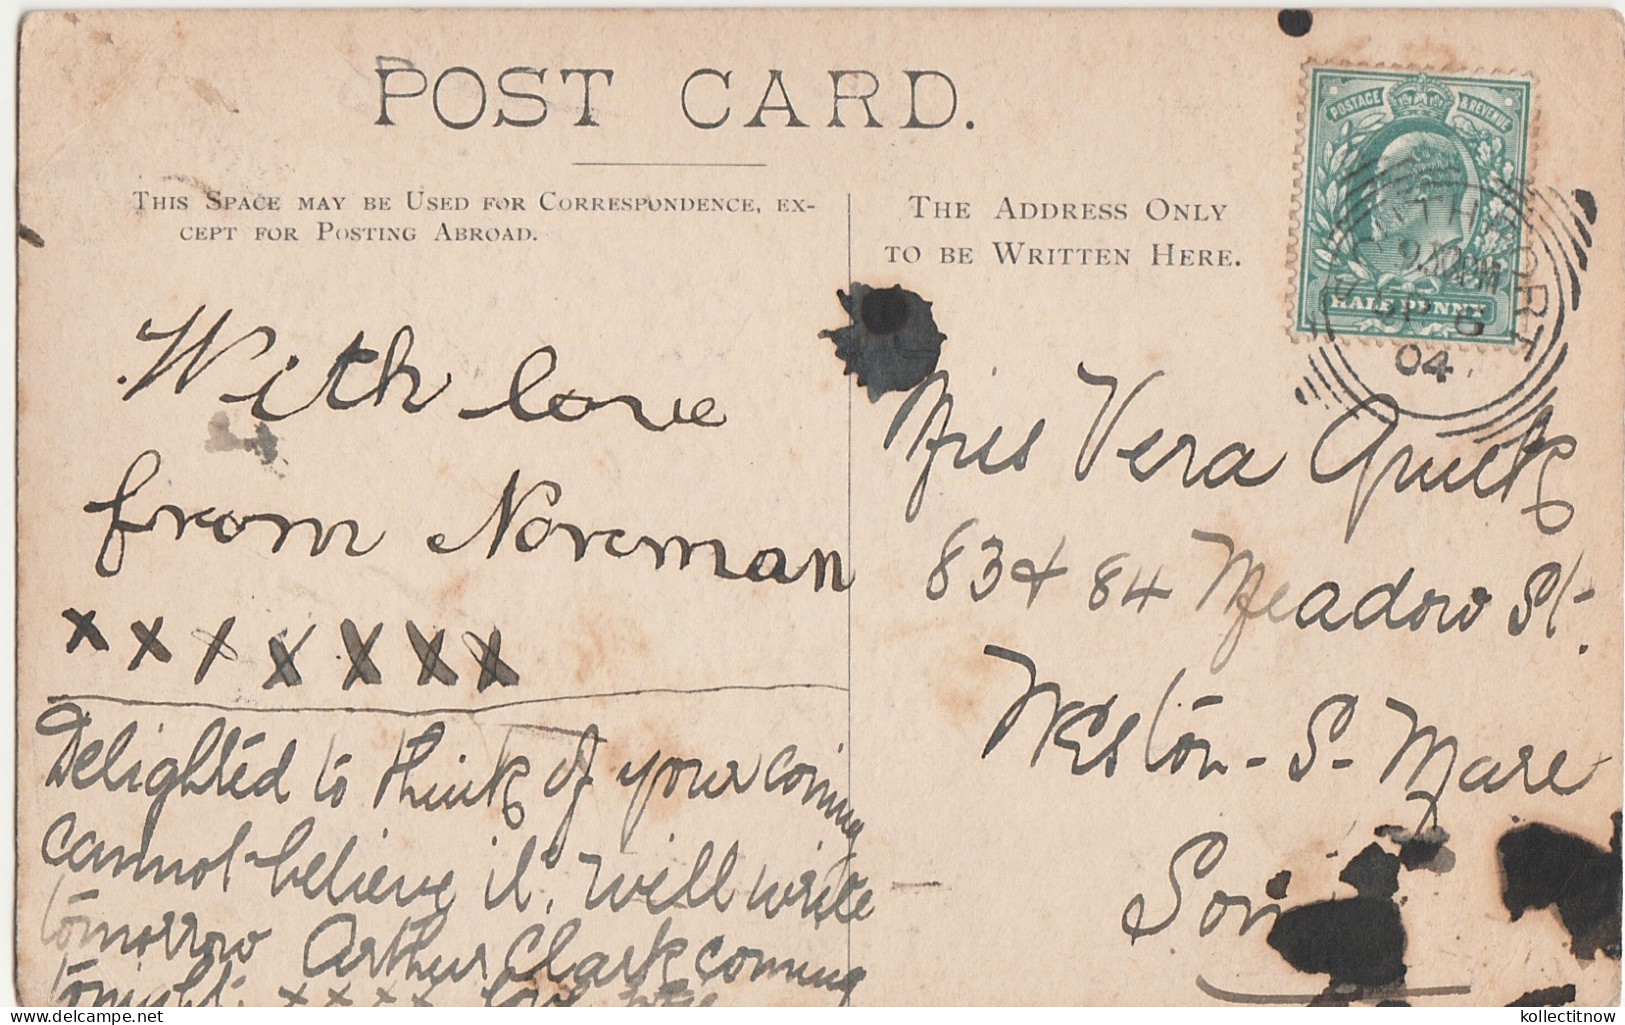 POST CARD.
THIS SPACE MAY BE USED FOR CORRESPONDENCE, EX-
CEPT FOR POSTING ABROAD.
THE ADDRESS ONLY
TO BE WRITTEN HERE.
POSTAGE & REVENUE
HALF PENNY
SOUTHPORT
9.30PM
SP 6
04
With love
from Norman
x x x x x x x
Delighted to think of your coming
cannot believe it. Will write
tomorrow Arthur Clark coming
tonight. x x x x
Miss Vera Quick
83 & 84 Meadow St.
Weston-S-Mare
Som
kollectitnow